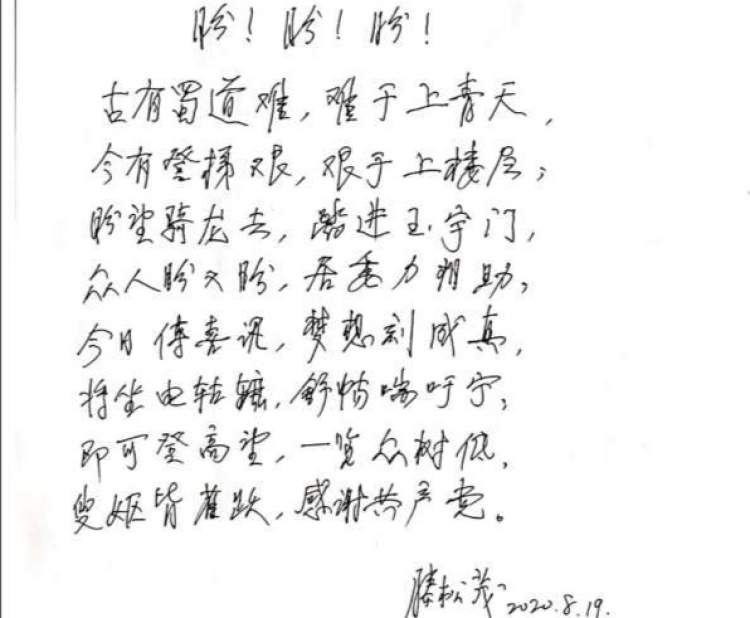 盼！盼！盼！
古有蜀道难，难于上青天，
今有登梯艰，艰于上楼层；
盼望骑龙去，踏进玉宇门，
众人盼又盼，居委力相助；
今日传喜讯，梦想刻成真，
将坐电轱辘，舒畅喘吁宁；
即可登高望，一览众树低，
叟妪皆雀跃，感谢共产党。
滕松茂 2020.8.19.